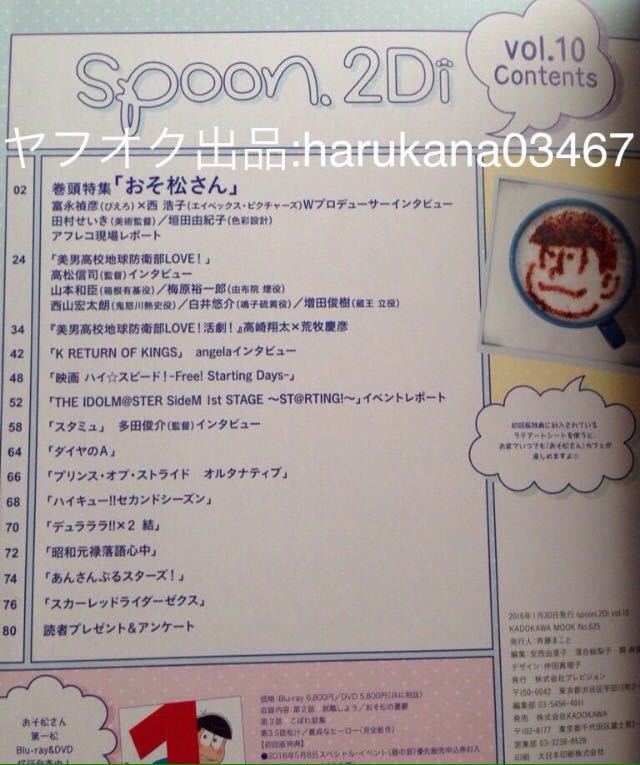 spoon.2Di
vol.10
Contents
ヤフオク出品:harukana03467
02 巻頭特集「おそ松さん」
富永禎彦(ぴえろ)×西 浩子(エイベックス・ピクチャーズ)Wプロデューサーインタビュー
田村せいき(美術監督)/垣田由紀子(色彩設計)
アフレコ現場レポート
24 「美男高校地球防衛部LOVE!」
高松信司(監督)インタビュー
山本和臣(箱根有基役)/梅原裕一郎(由布院 煙役)
西山宏太朗(鬼怒川熱史役)/白井悠介(鳴子硫黄役)/増田俊樹(蔵王 立役)
34 『美男高校地球防衛部LOVE!活劇!』高崎翔太×荒牧慶彦
42 「K RETURN OF KINGS」 angelaインタビュー
48 「映画 ハイ☆スピード!-Free! Starting Days-」
52 「THE IDOLM@STER SideM 1st STAGE ~ST@RTING!~」イベントレポート
58 「スタミュ」 多田俊介(監督)インタビュー
64 「ダイヤのA」
66 「プリンス・オブ・ストライド オルタナティブ」
68 「ハイキュー!!セカンドシーズン」
70 「デュラララ!!×2 結」
72 「昭和元禄落語心中」
74 「あんさんぶるスターズ!」
76 「スカーレッドライダーゼクス」
80 読者プレゼント&アンケート
初回版特典に封入されている
ラテアートシートを使うと、
お家でいつでも「おそ松さん」カフェが
楽しめますよ☆
2016年1月30日発行 spoon.2Di vol.10
KADOKAWA MOOK No.625
発行人:斉藤まこと
編集:安西由里子 落合絵梨子
デザイン:仲田真理子
発行 株式会社プレビジョン
〒150-0042 東京都渋谷区宇田川町
編集部 03-5456-4011
発売 株式会社KADOKAWA
〒102-8177 東京都千代田区富士見
営業部 03-3238-8528
印刷 大日本印刷株式会社
おそ松さん
第一松
Blu-ray&DVD
価格:Blu-ray 6,800円/DVD 5,800円(共に税抜)
収録内容:第2話 就職しよう/おそ松の憂鬱
第3話 こぼれ話集
第3.5話松汁/童貞なヒーロー(完全新作)
【初回版特典】
●2016年5月8日スペシャル・イベント(昼の部)優先販売申込券封入